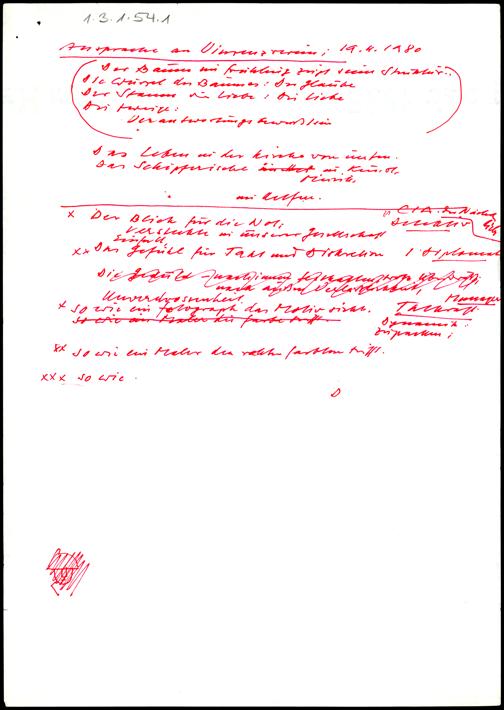 1.3.1.54.1
Ansprache an Vinzenzverein, 19.4.1980
Der Baum im Frühling zeigt seine Struktur..
Die Wurzel des Baumes: Der Glaube
Der Stamm die Liebe: Die Liebe
Die Zweige:
Verantwortungsbewußtsein
Das Leben in der Kirche von unten.
Das Schöpferische in Kunst,
Musik,
im Helfen.
x Der Blick für die Not,
Versteckte in unserer Gesellschaft
Detektiv
Einfall
xx Das Gefühl für Takt und Diskretion 1 Diplomat
Die Geduld
nach außen
Unverdrossenheit
Manager
x so wie ein Fotograph das Motiv sieht. Tatkraft
so wie ein Maler die Farbe trifft
Dynamik:
anpacken;
xx so wie ein Maler den rechten Farbton trifft.
xxx so wie